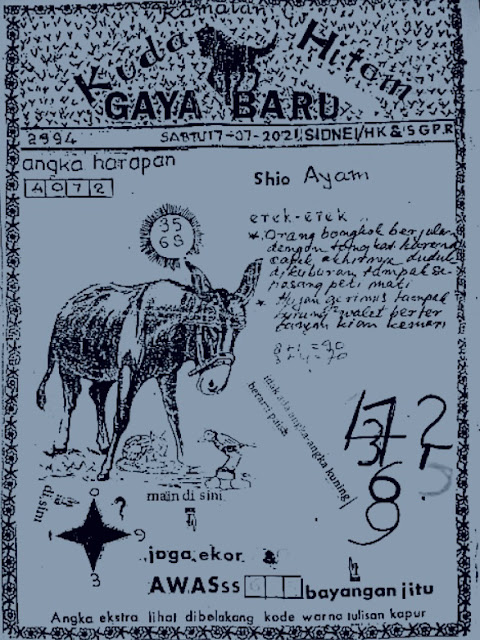 Kuda Hitam
GAYA BARU
2994
SABTU 17-07-2021, SIDNEI/HK & SGP.R
angka harapan
4 0 7 2
Shio Ayam
erek-erek
35
68
* Orang bongkok berjalan
dengan tongkat karena
akhirnya duduk
dikuburan tampak se-
pasang peti mati
* Hujan gerimis tampak
burung walet berter
kian kemari
angka-angka kuning
berarti
17
?
6
9
main di sini
di sini
0
?
9
3
jaga ekor
AWASss
bayangan jitu
Angka ekstra lihat dibelakang kode warna tulisan kapur